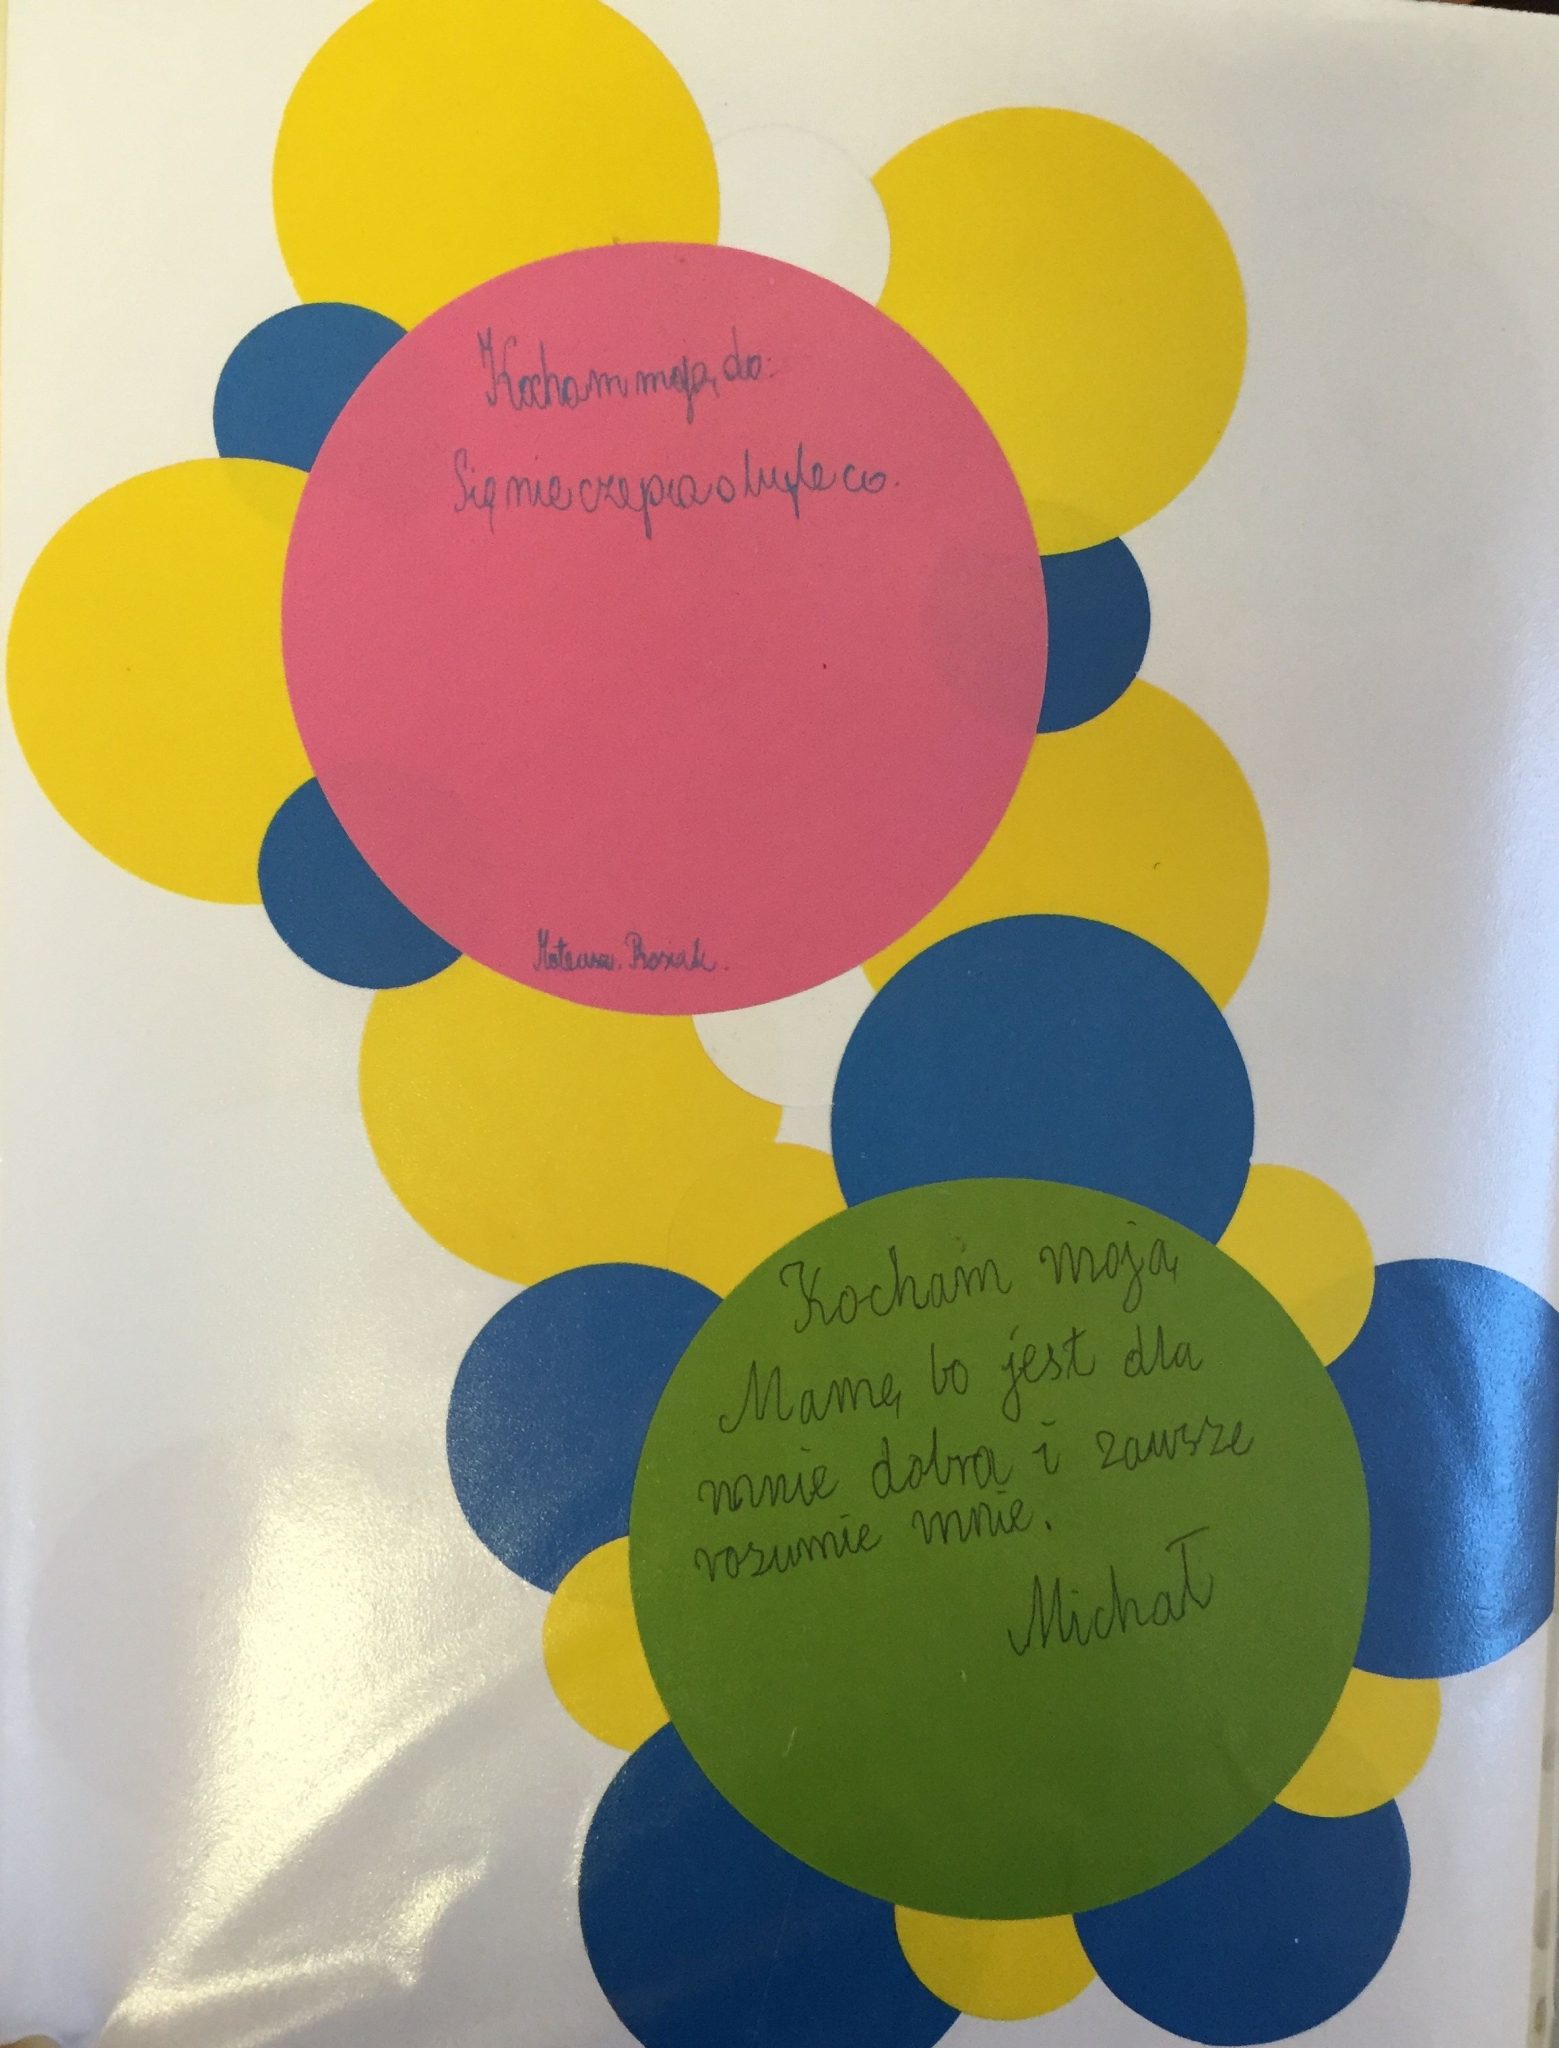 Kocham moją do.
Się nie czepia o byle co.
Mateusz. Rosiak.
Kocham moją
Mamę, bo jest dla
mnie dobra i zawsze
rozumie mnie.
Michał